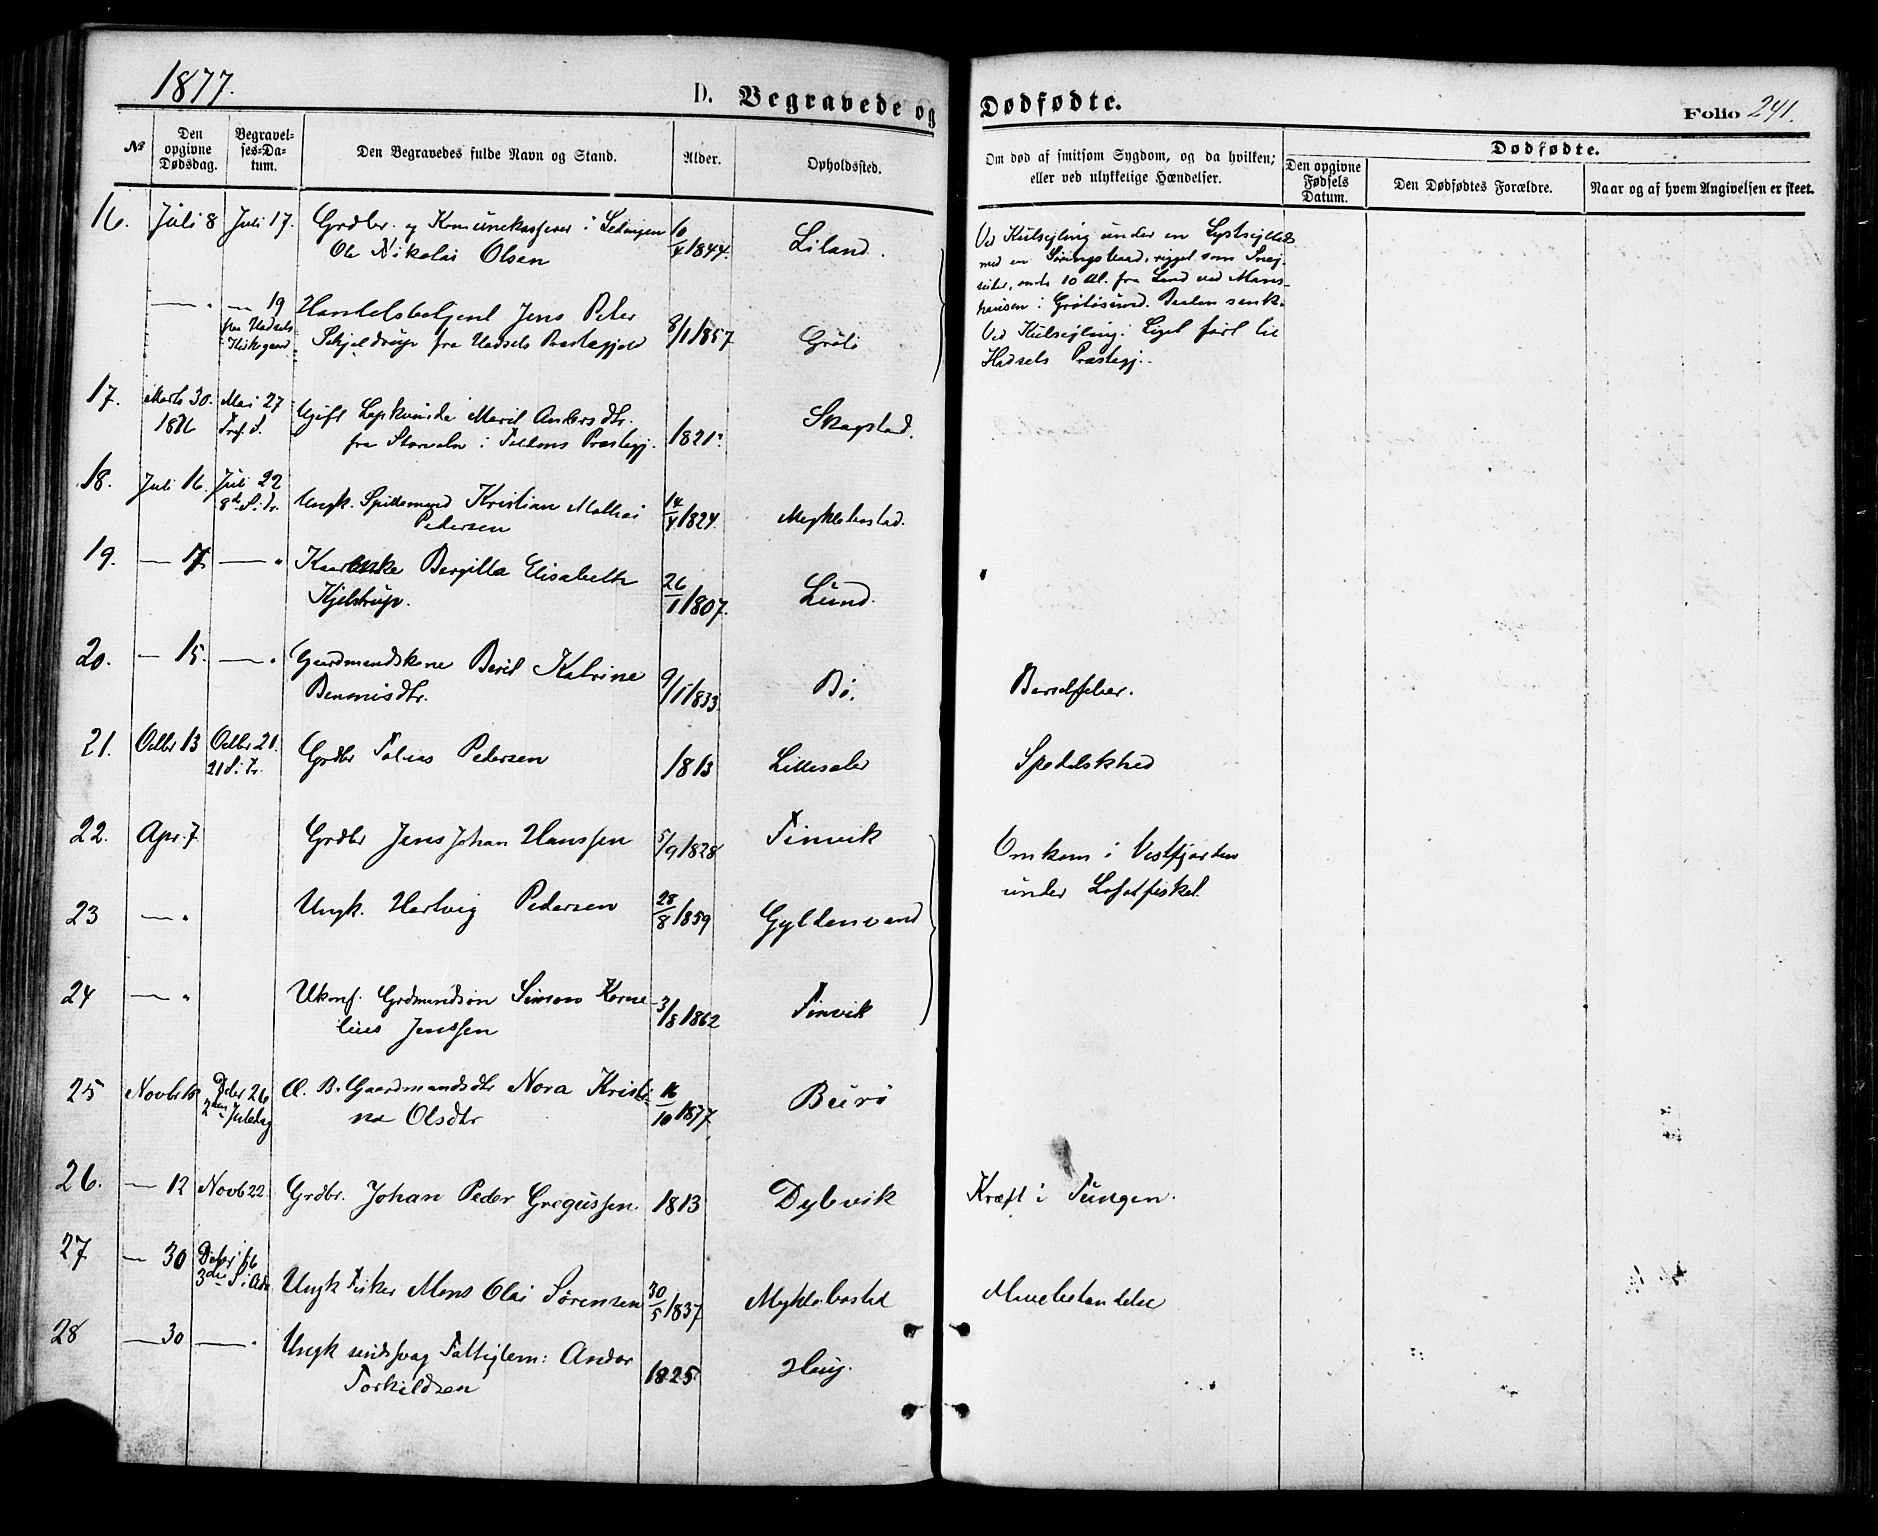 1877.
D. Begravede og Dødfødte.
Folio 241.
№
Den opgivne Dødsdag.
Begravelses-Datum.
Den Begravedes fulde Navn og Stand.
Alder.
Opholdssted.
Om død af smitsom Sygdom, og da hvilken;
eller ved ulykkelige Hændelser.
Dødfødte.
Den opgivne Fødsels Datum.
Den Dødfødtes Forældre.
Naar og af hvem Angivelsen er skeet.
16. Juli 8 Juli 17. Grdbr. og Komunekasserer i Ledingen
Ole Nikolai Olsen 10/4 1844. Liland.
Ved Kulsejling under en Lystsejllads
med en
10 Al. fra Land ved Mans-
hausen i Grøtøsund. Baaden sank.
— " — 19 Handelsbetjent Jens Peter
paa Hadsels
Kirkegaard Schjeldrup fra Hadsels Præstegjeld 8/1 1857 Grøtø
Ved Kulsejling. Liget ført til
Hadsels Præstegj.
17. Marts 30. Mai 27 Gift Lapkvinde Marit Andersdtr.
1876 Tref. S. fra i Præstegj. 1821? Skagstad.
18. Juli 16. Juli 22 Ungk. Kristian Mathias
8de S. Tr. Pedersen 14/4 1824. Myklebostad.
19. — 17 — " Bergitta Elisabeth
Kjelstrup. 26/1 1807. Lund.
20. — 15. — " Gaardmandskone Berit Katrine
Benonisdtr. 9/1 1833. Bø. Barselfeber.
21. Octbr 13 Octbr 21. Grdbr Tobias Pedersen 1813
21 S. Tr. Spedalskhed
22. Apr. 7 Grdbr Jens Johan Hanssen 5/9 1828 Finvik
Omkom i Vestfjorden
under Lofotfisket.
23 — " Ungk. Hartvig Pedersen 28/8 1859 Gyldenvand
24 — " Ukonf. Grdmandssøn Simon Korne-
lius Jenssen 3/8 1862 Finvik
25 Novbr Dcbr 26 Æ. B. Gaardmandsdtr Nora Kristi-
2den Juledag na Olsdtr 16/10 1877 Burø
26. — 12 Novb 22. Grdbr. Johan Peder Gregussen. 1813 Dybvik Kræft i Tungen.
27 — 30 Dcbr 16
3de S. i Adv. Ungk Fisker Mons Olai Sørensen 30/5 1837 Myklebostad
28 — 30 — " Ungk sindssvag Fattiglem: Andor
Torkildsen 1825 Haug.